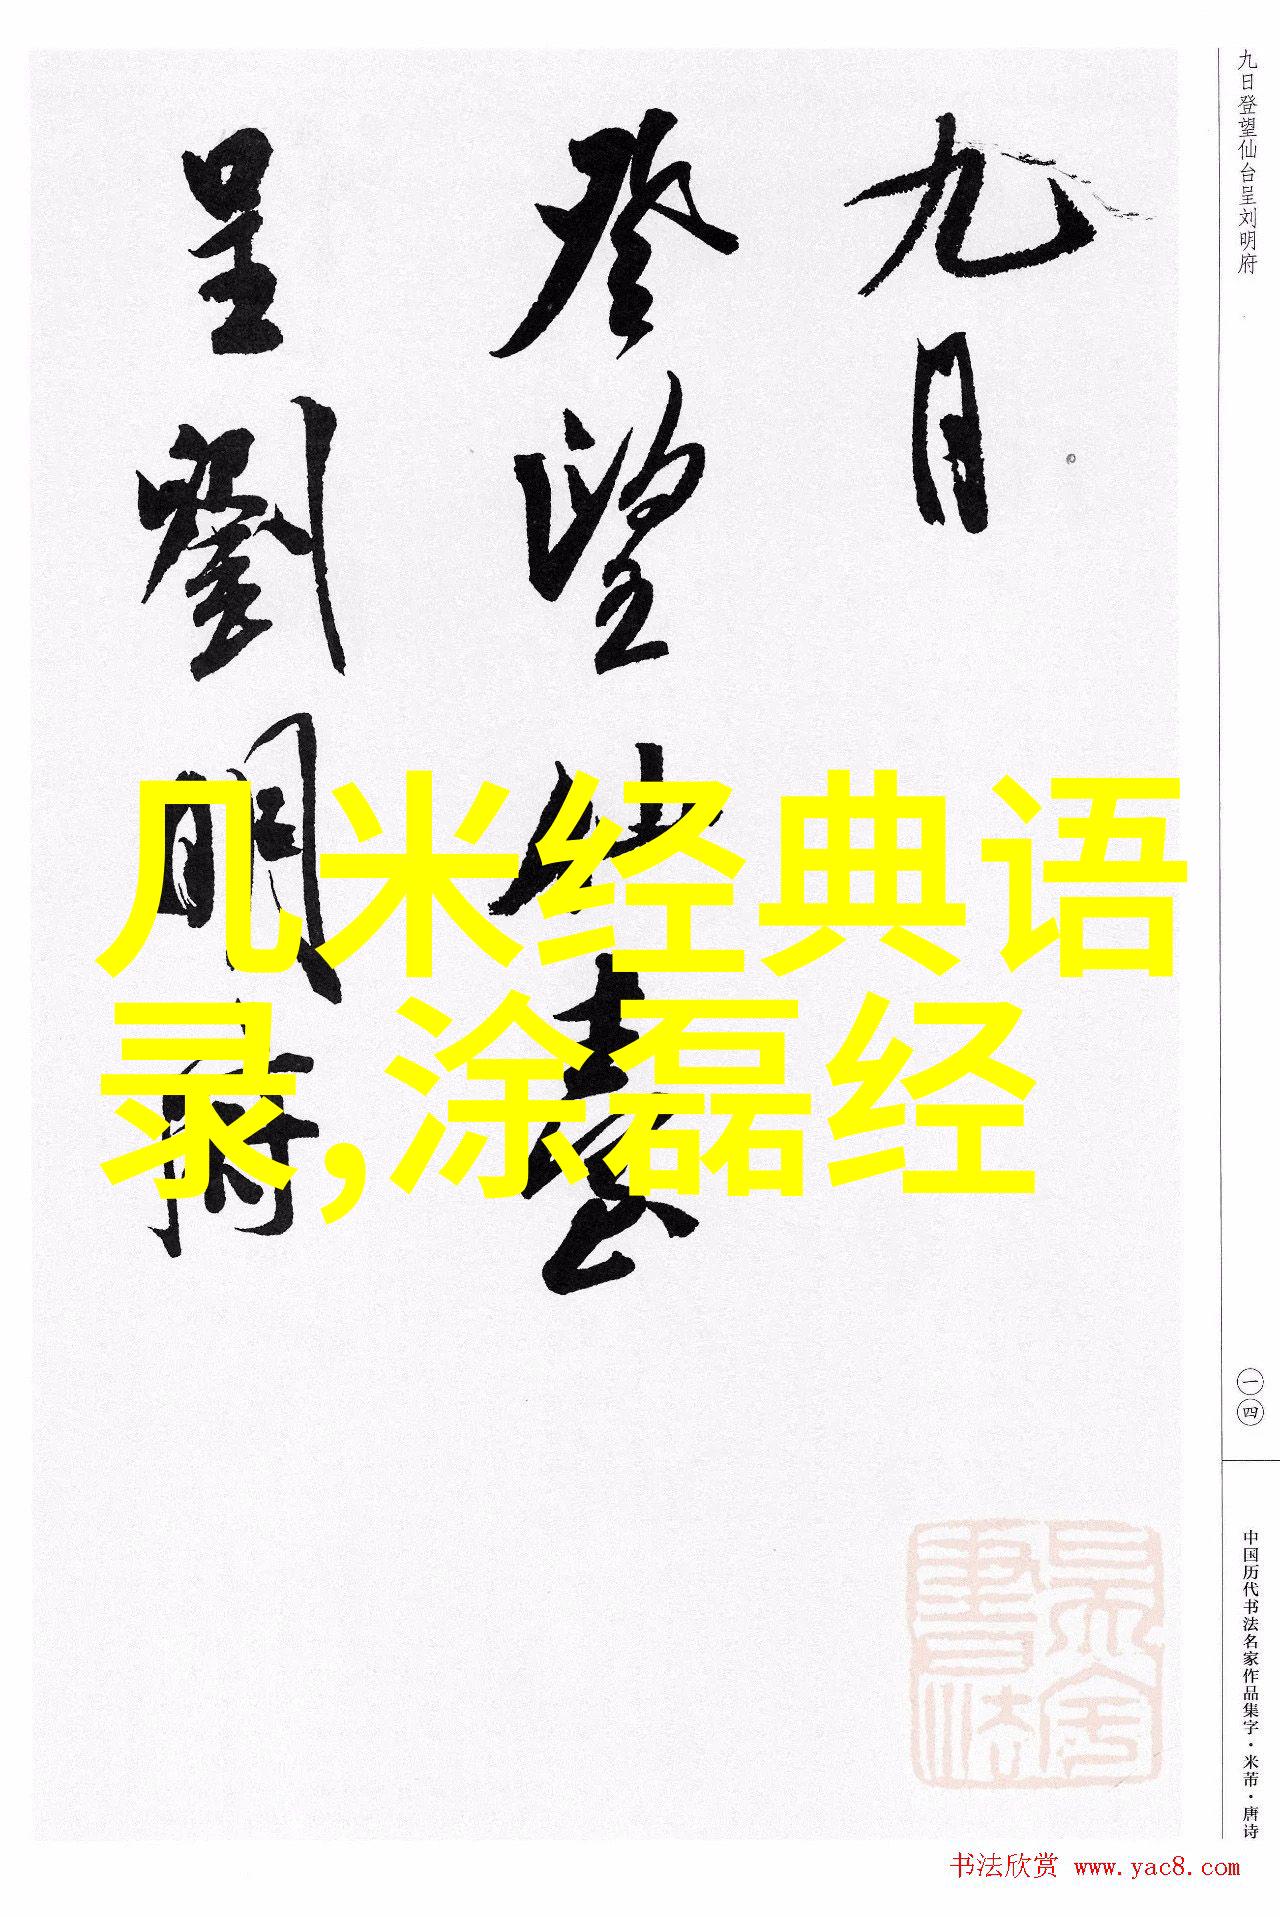 九日
登望仙臺
呈劉明府
几米经典语
录,涂磊经
九日登望仙台呈刘明府
一四
中国历代书法名家作品集字·米芾·唐诗
书法欣赏 www.yac8.com